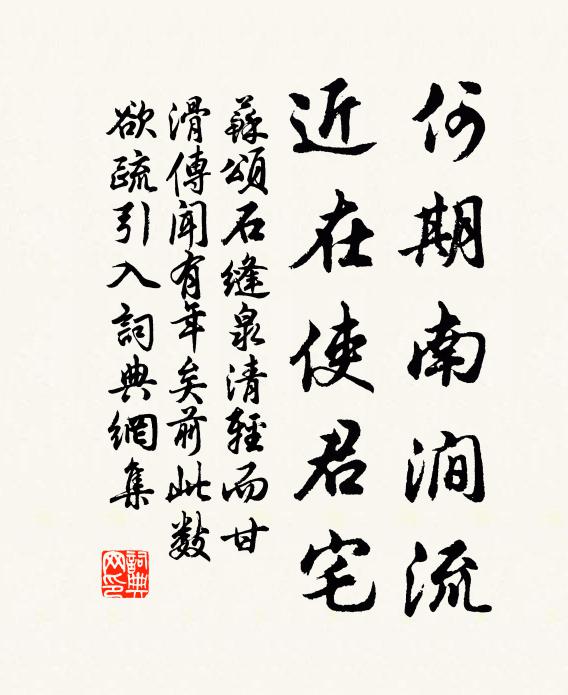 何期南澗流
近在使君宅
蘇頌石縫泉清輕而甘
滑傳聞有年矣前此數
欲疏引入詞典網集
詞典
网印